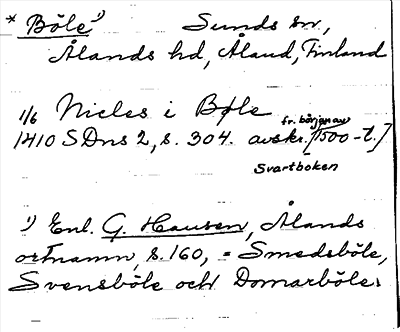 * Böle¹⁾ Sunds sn,
Ålands hd, Åland, Finland
1/6 Nicles i Bøle fr. början av
1410 SDns 2, s. 304. avskr. [1500-t.]
Svartboken
¹⁾ Enl. G. Hausen, Ålands
ortnamn, s. 160, = Smedsböle,
Svensböle och Domarböle.